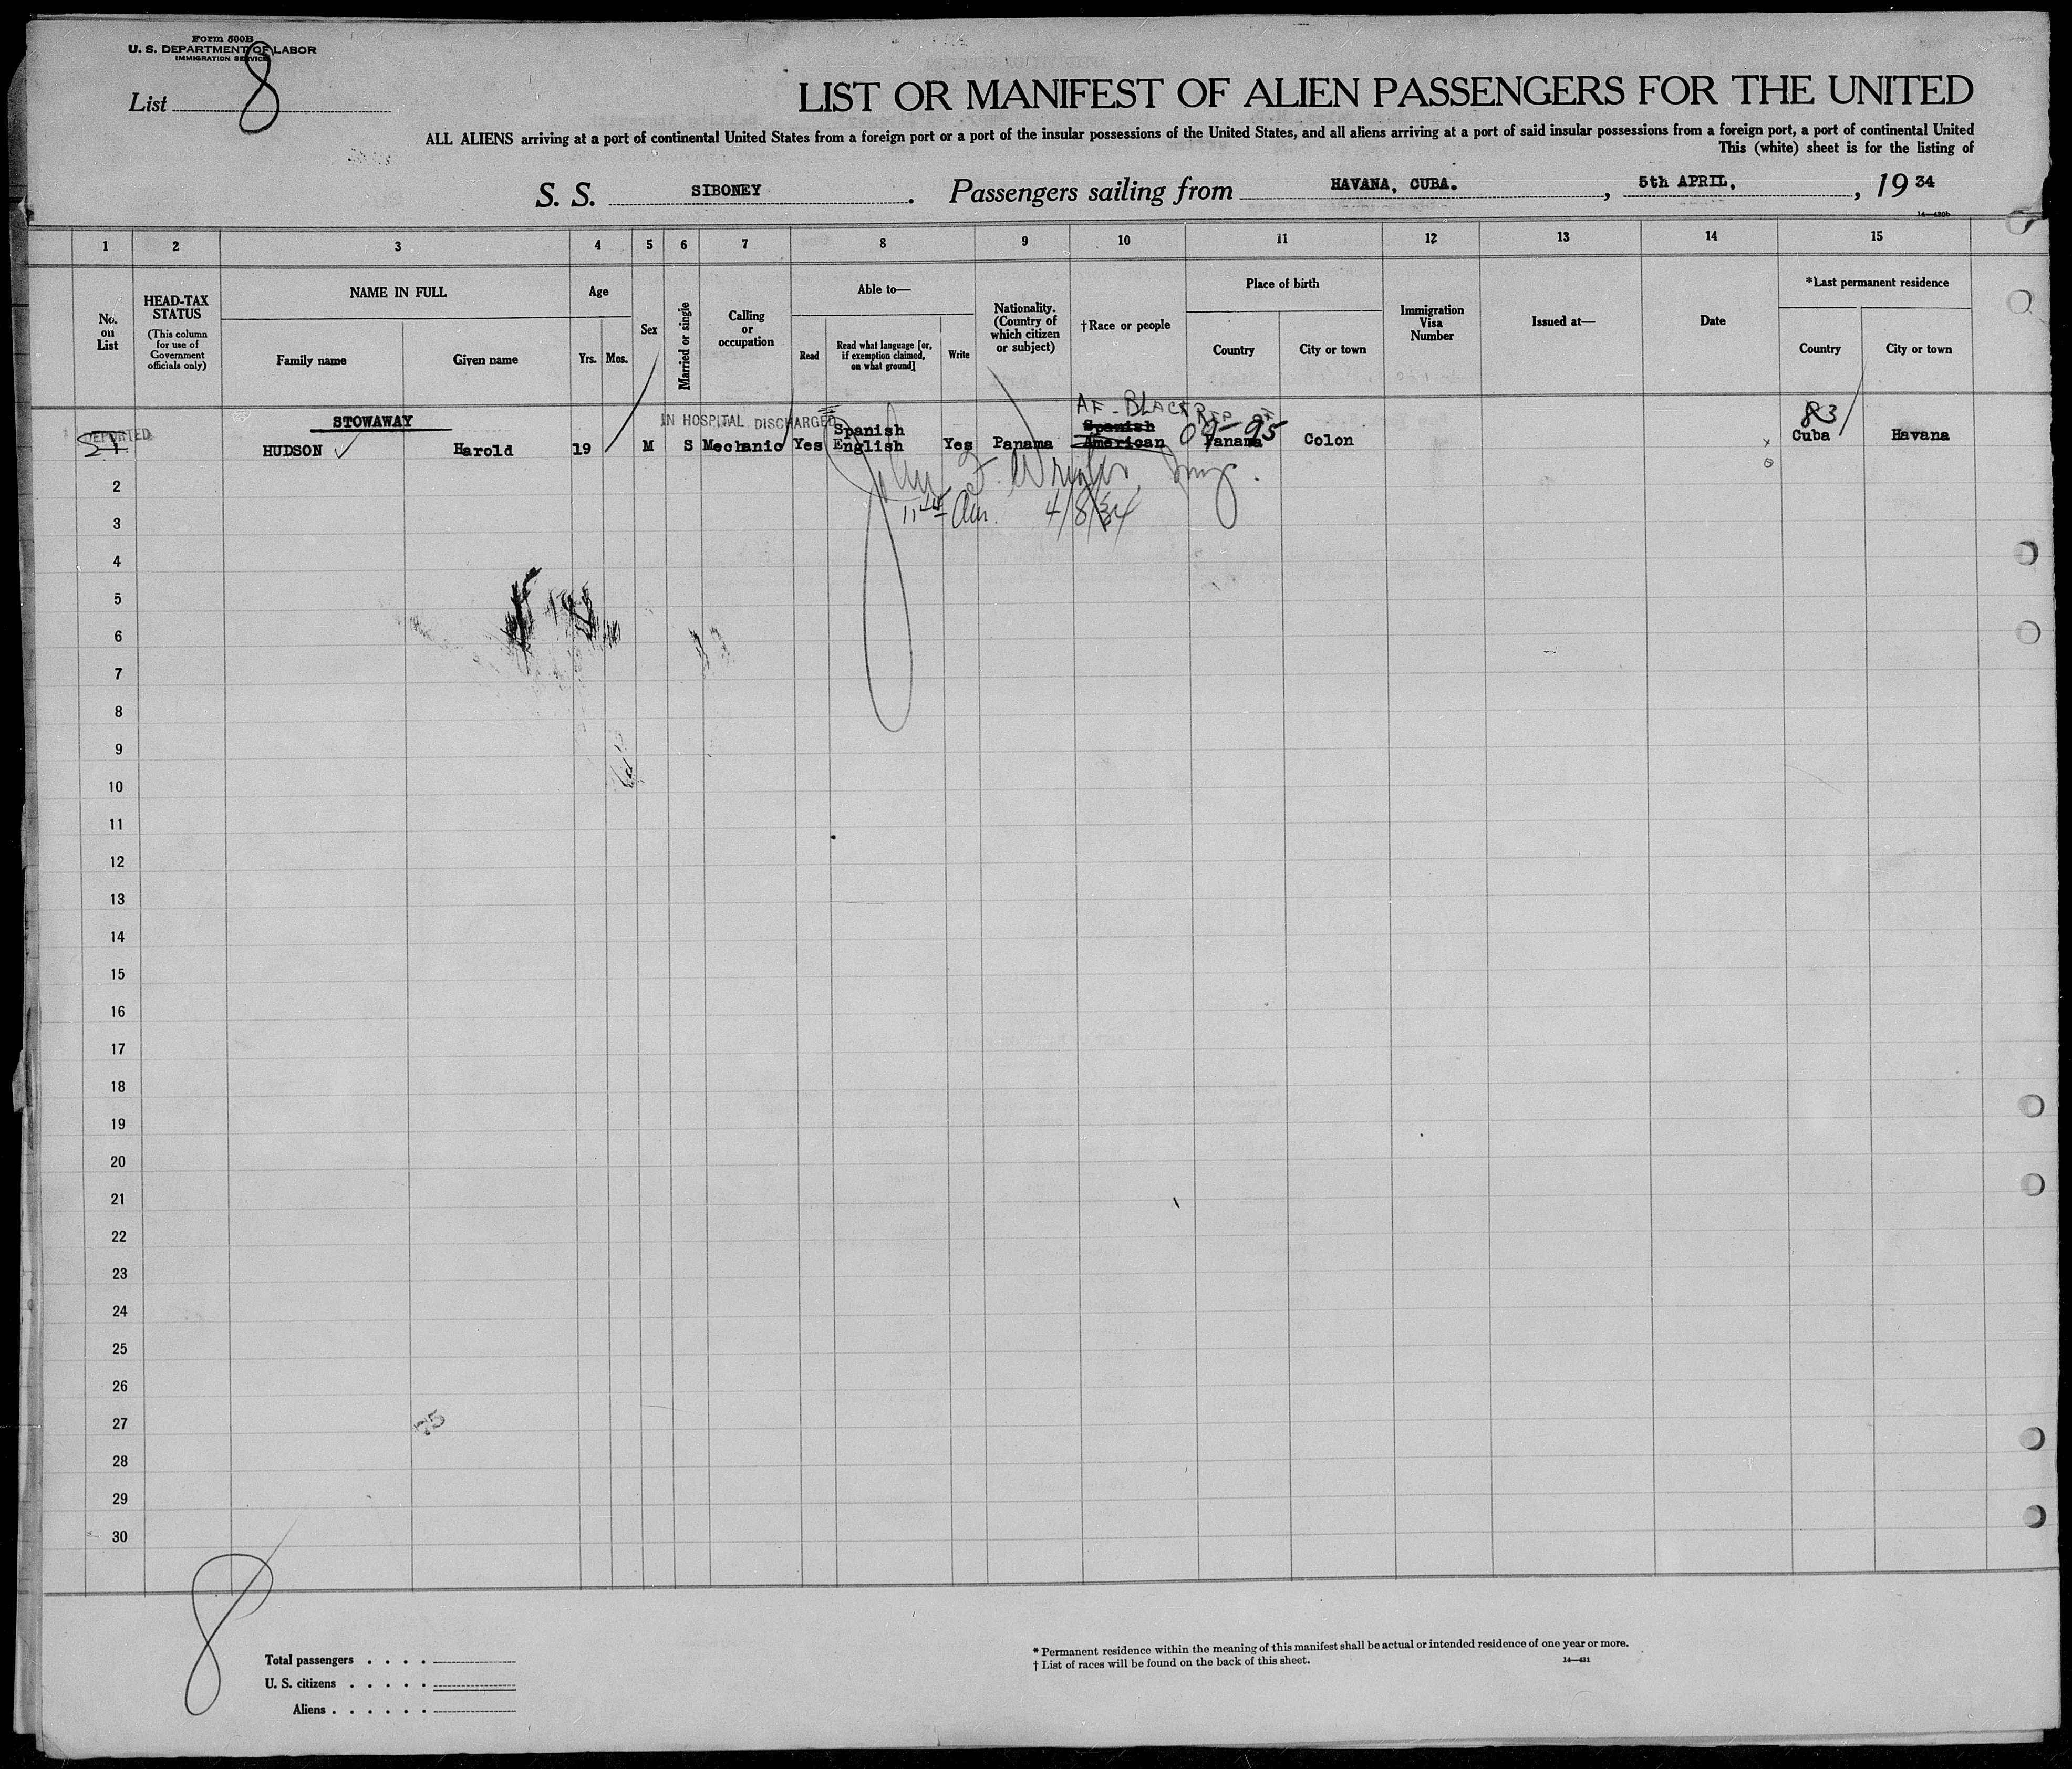 Form 500B
U. S. DEPARTMENT OF LABOR
IMMIGRATION SERVICE
List 8
LIST OR MANIFEST OF ALIEN PASSENGERS FOR THE UNITED
ALL ALIENS arriving at a port of continental United States from a foreign port or a port of the insular possessions of the United States, and all aliens arriving at a port of said insular possessions from a foreign port, a port of continental United
This (white) sheet is for the listing of
S. S. SIBONEY. Passengers sailing from HAVANA, CUBA. , 5th APRIL, , 19 34
14—430b
1 2 3 4 5 6 7 8 9 10 11 12 13 14 15
No. on List
HEAD-TAX STATUS
(This column for use of Government officials only)
NAME IN FULL
Family name
Given name
Age
Yrs. Mos.
Sex
Married or single
Calling or occupation
Able to—
Read
Read what language [or, if exemption claimed, on what ground]
Write
Nationality. (Country of which citizen or subject)
†Race or people
Place of birth
Country
City or town
Immigration Visa Number
Issued at—
Date
*Last permanent residence
Country
City or town
STOWAWAY
IN HOSPITAL DISCHARGED
AF-BLACK
REP
83
DEPORTED
HUDSON ✓ Harold 19 M S Mechanic Yes Spanish English Yes Panama Spanish American Panama Colon Cuba Havana
09-95
John F. Wright, Insp.
11 45 Am. 4/8/34
2
3
4
5
6
7
8
9
10
11
12
13
14
15
16
17
18
19
20
21
22
23
24
25
26
27
75
28
29
30
8
Total passengers . . . .
U. S. citizens . . . . .
Aliens . . . . . .
* Permanent residence within the meaning of this manifest shall be actual or intended residence of one year or more.
† List of races will be found on the back of this sheet.
14—431